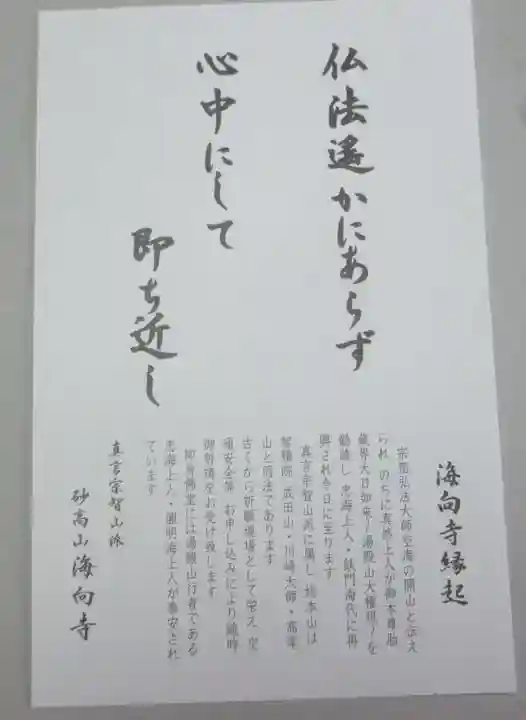 仏法遙かにあらず
心中にして
即ち近し
海向寺縁起
宗祖弘法大師空海の開山と伝え
られ のちに真然上人が御本尊胎
蔵界大日如来(湯殿山大権現)を
勧請し 忠海上人・鉄門海氏に再
興され今日に至ります
真言宗智山派に属し 総本山は
智積院 成田山・川崎大師・高尾
山と同法であります
古くから祈願道場として栄え 交
通安全祭 お申し込みにより随時
御祈祷をお受け致します
即身佛堂には湯殿山行者である
忠海上人・圓明海上人が奉安され
ています
真言宗智山派
砂高山海向寺